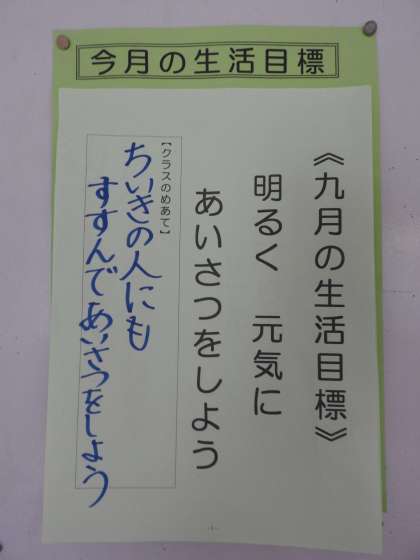 今月の生活目標
《九月の生活目標》
明るく 元気に
あいさつをしよう
【クラスのめあて】
ちいきの人にも
すすんであいさつをしよう